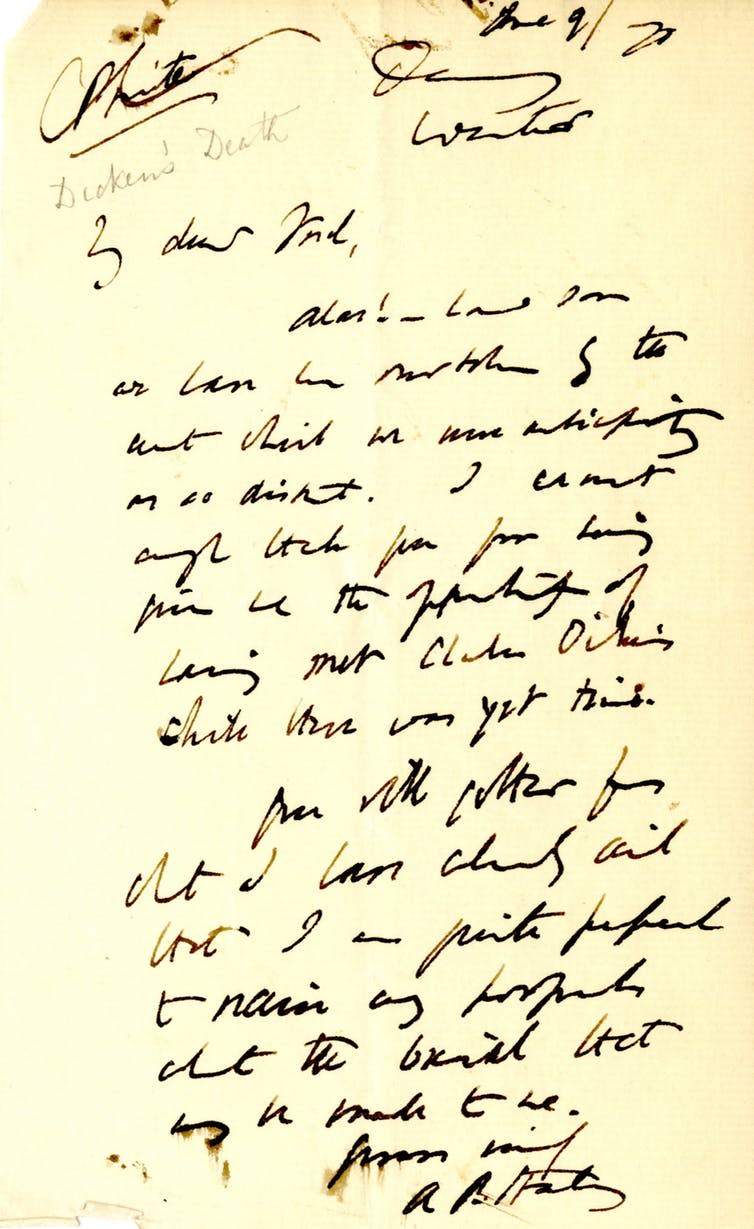 June 9/70
Private
Deanery
Westminster
Dicken's Death
My dear Lord,
Alas! – how soon
we have been overtaken by the
event which we were anticipating
as so distant. I cannot
enough thank you for having
given me the opportunity of
having met Charles Dickens
while there was yet time.
You will gather from
what I have already said
that I am quite prepared
to receive any proposals
about the burial that
may be made to me.
Yours
A P Stanley